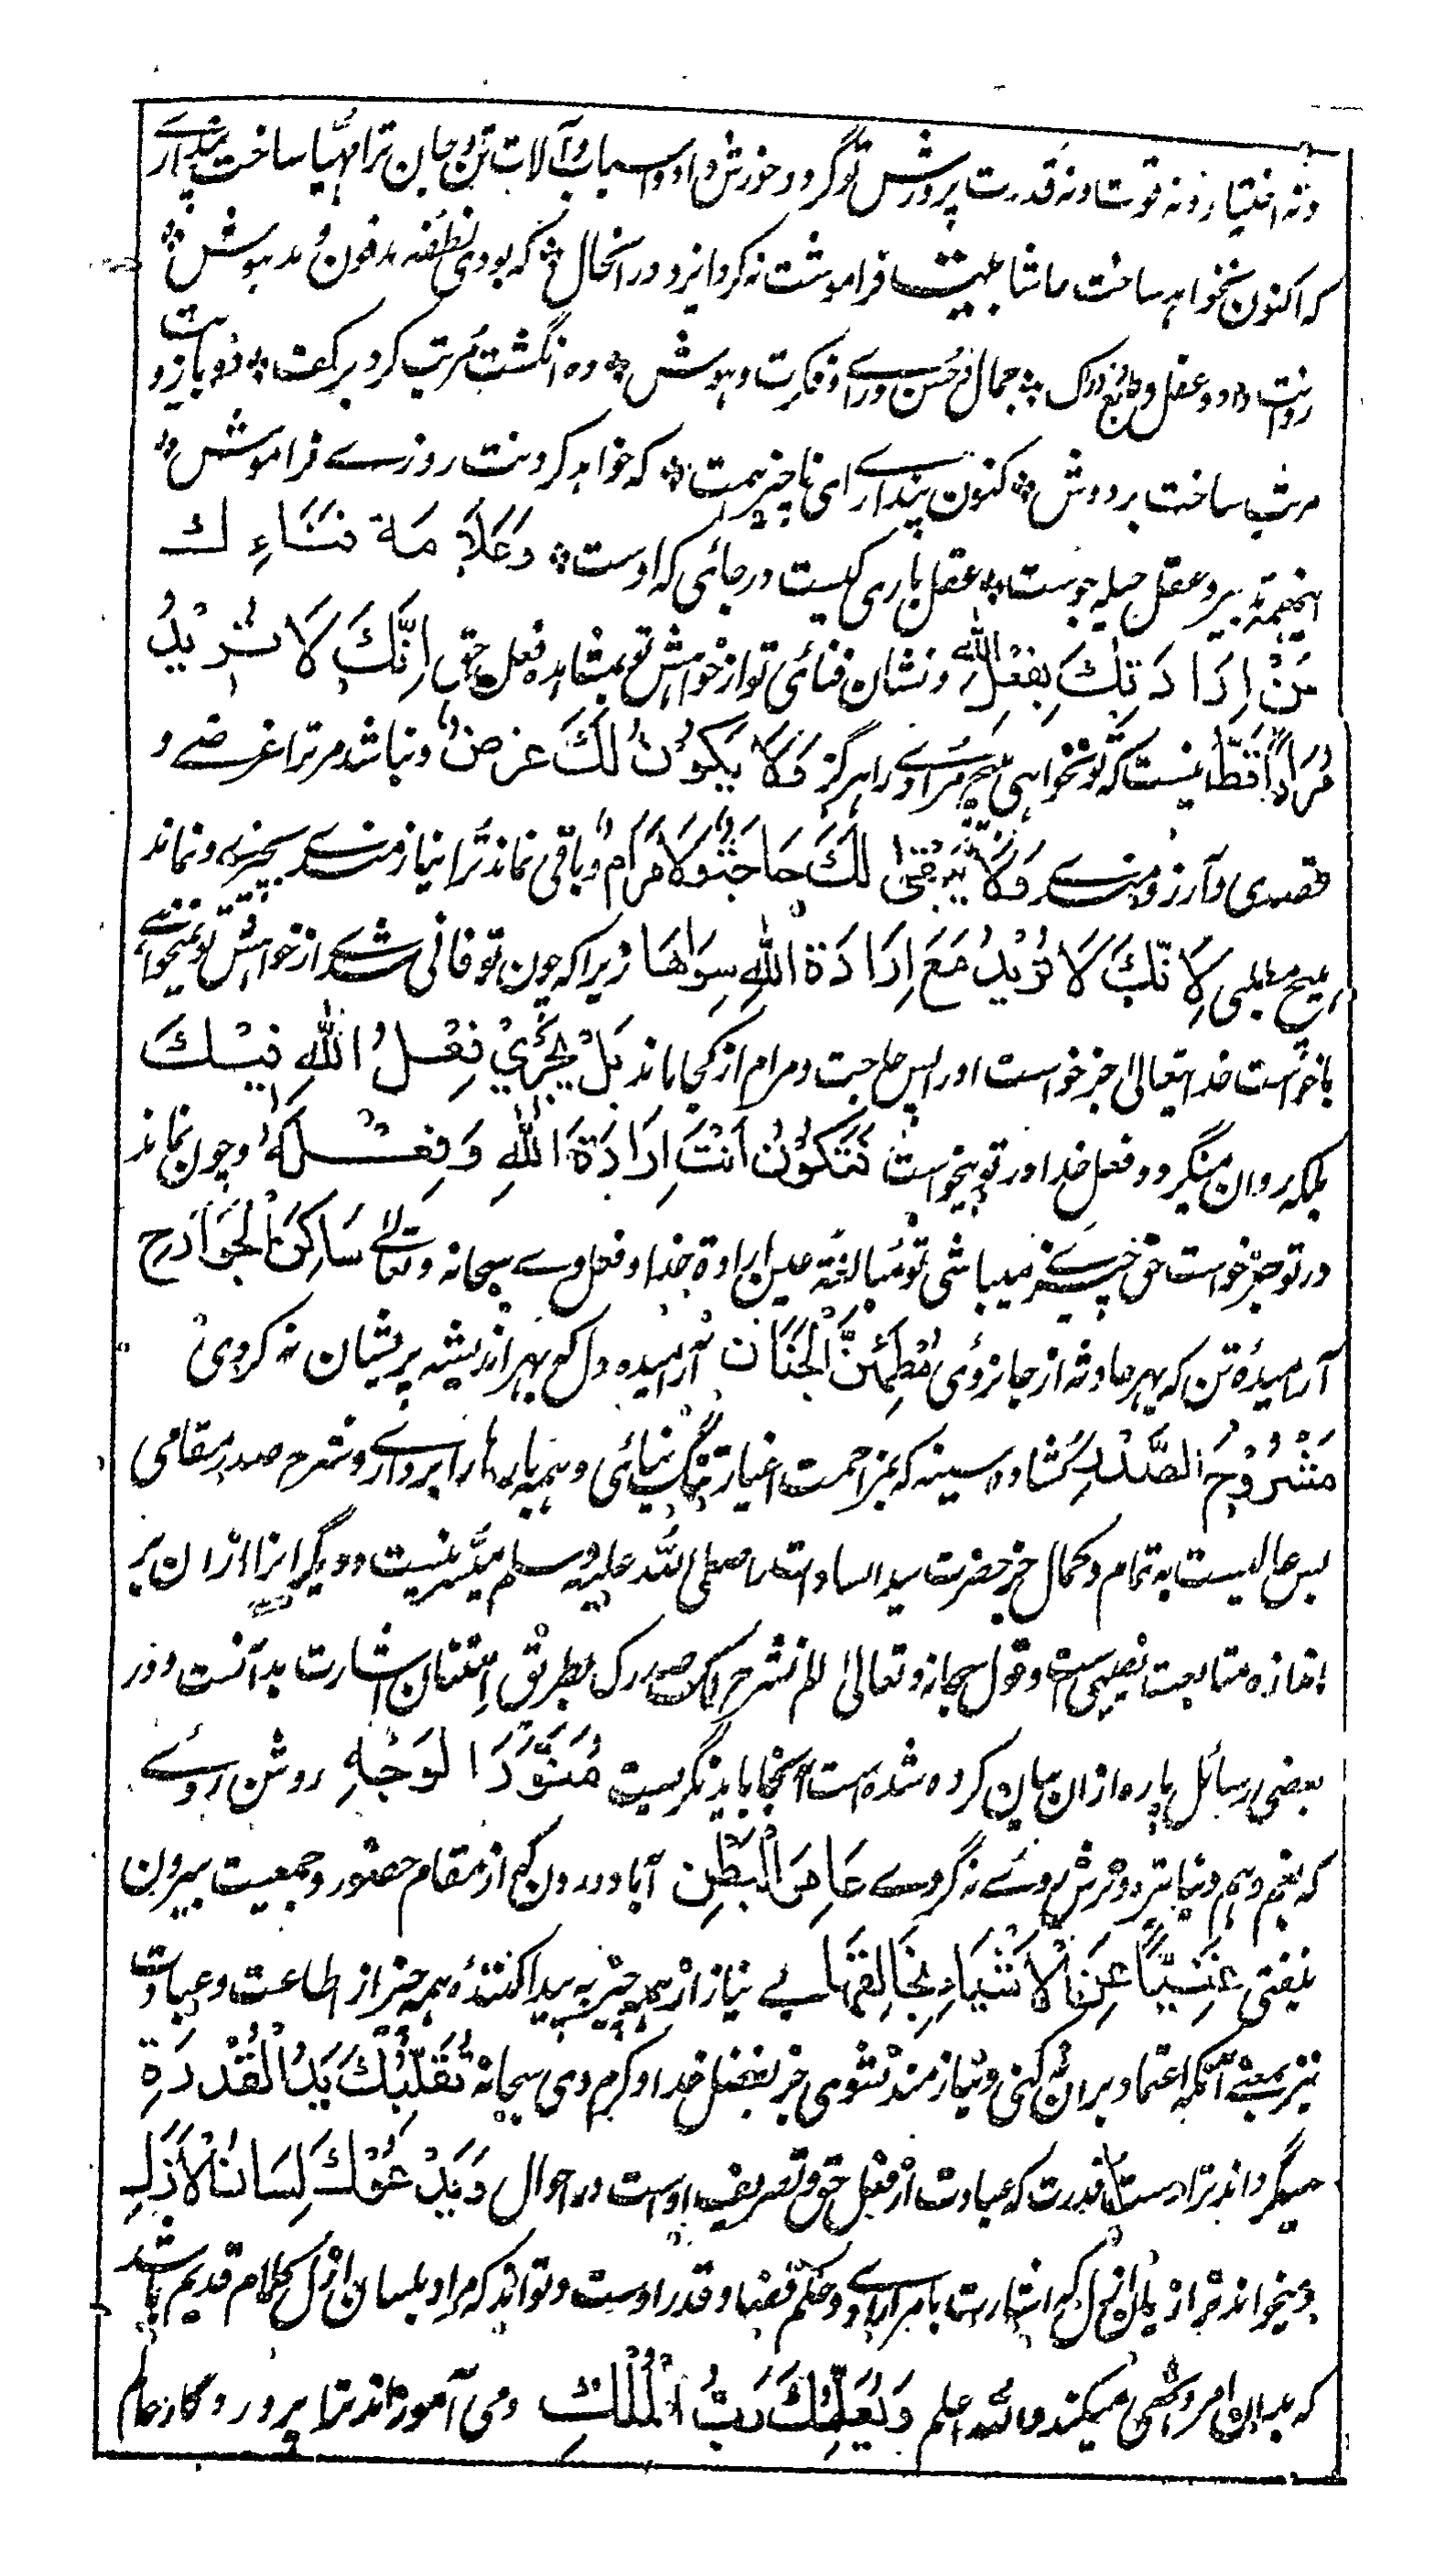 ونه اختیار ونه قوت ونه قدرت پرورش تو کرد وخورش داد واسباب وآلات تن وجان ترا مهیا ساخت پنداری
که اکنون نخواهد ساخت حاشا بیت فراموشت نکرد ایزد در انحال ؞ که بودی نطفه مدفون و مدهوش ؞
روانت داد وعقل وطبع وادراک ؞ جمال وحسن ورای وفکرت وهوش ؞ ده انگشت مرتب کرد بر کف ؞ دو بازویت
مرتب ساخت بر دوش ؞ کنون پنداری ای ناچیز همت ؞ که خواهد کردنت روزی فراموش ؞
اینهمه تدبیر وعقل حیله جوست ؞ عقل باری کیست در جائی که اوست ؞ وَعَلَامَةُ فَنَاءِكَ
عَنْ اِرَادَتِكَ بِفِعْلِ اللهِ ونشان فنائی تو از خواهش تو بمشاهده فعل حق اِنَّكَ لَا تُرِيْدُ
مُرَادًا قَطُّ اینست که تو نخواهی هیچ مرادی را هرگز وَلَا يَكُوْنُ لَكَ غَرَضٌ ونباشد مر ترا غرضے و
قصدی وآرزومندے وَلَا يَبْقٰى لَكَ حَاجَةٌ وَلَا مَرَامٌ وباقی نماند ترا نیازمندی بچیزے ونماند
هیچ مطلبی لِاَنَّكَ لَا تُرِيْدُ مَعَ اِرَادَةِ اللهِ سِوَاهَا زیرا که چون تو فانی شدی از خواهش تو نمیخواهی
باخواست خدایتعالی جز خواست اورا پس حاجت ومرام از کجا ماند بَلْ يَجْرِيْ فِعْلُ اللهِ فِيْكَ
بلکه روان میگردد فعل خدا در تو بیخواست فَتَكُوْنُ اَنْتَ اِرَادَةَ اللهِ وَفِعْلَهٗ وچون نماند
در تو جز خواست حق چیزے میباشی تو مبالغة عین ارادة خدا وفعل وے سبحانه وتعالے سَاكِنَ الْجَوَارِحِ
آرامیدهٔ تن که بهر حادثه از جا نروی مُطْمَئِنَّ الْجَنَانِ آرامیده دل که بهر اندیشه پریشان نه گردی
مَشْرُوْحَ الصَّدْرِ کشاده سینه که بمزاحمت اغیار تنگ نیائی وهمه بارها را برداری وشرح صدر مقامی
بس عالیست به تمام وکمال جز حضرت سید السادات را صلی الله علیه وسلم میسر نیست ودیگرانرا ازان بر
اندازه متابعت نصیبی است وقول سبحانه وتعالی الم نشرح لک صدرک بطریق امتنان اشارت بدانست ودر
بعضی رسائل پاره ازان بیان کرده شده است آنجا باید نگریست مُنَوَّرَ الْوَجْهِ روشن روے
که بغم وهم دنیا تر وترش روئے نگردے عَامِرَ الْبَطْنِ آباد درون که از مقام حضور وجمعیت بیرون
نیفتی غَنِيًّا عَنِ الْاَشْيَاءِ بِخَالِقِهَا بے نیاز از همه چیز به پیدا کنندهٔ همه چیز از طاعت وعبادت
نیز بمعنی آنکه اعتماد بران نکنی ونیازمند نشوی جز بفضل خدا وکرم وی سبحانه تُقَلِّبُكَ يَدُ الْقُدْرَةِ
میگرداند ترا دست قدرت که عبارت از فعل حق وتصریف اوست در احوال وَيَدْعُوْكَ لِسَانُ الْاَزَلِ
ومیخواند ترا زبان ازل که اشارت بامر ارادی وحکم قضا وقدر اوست وتواند که مراد بلسان ازل کلام قدیم باشد
که بدان امر ونهی میکند والله اعلم وَيُعَلِّمُكَ رَبُّ الْمُلْكِ ومی آموزاند ترا پروردگار عالم